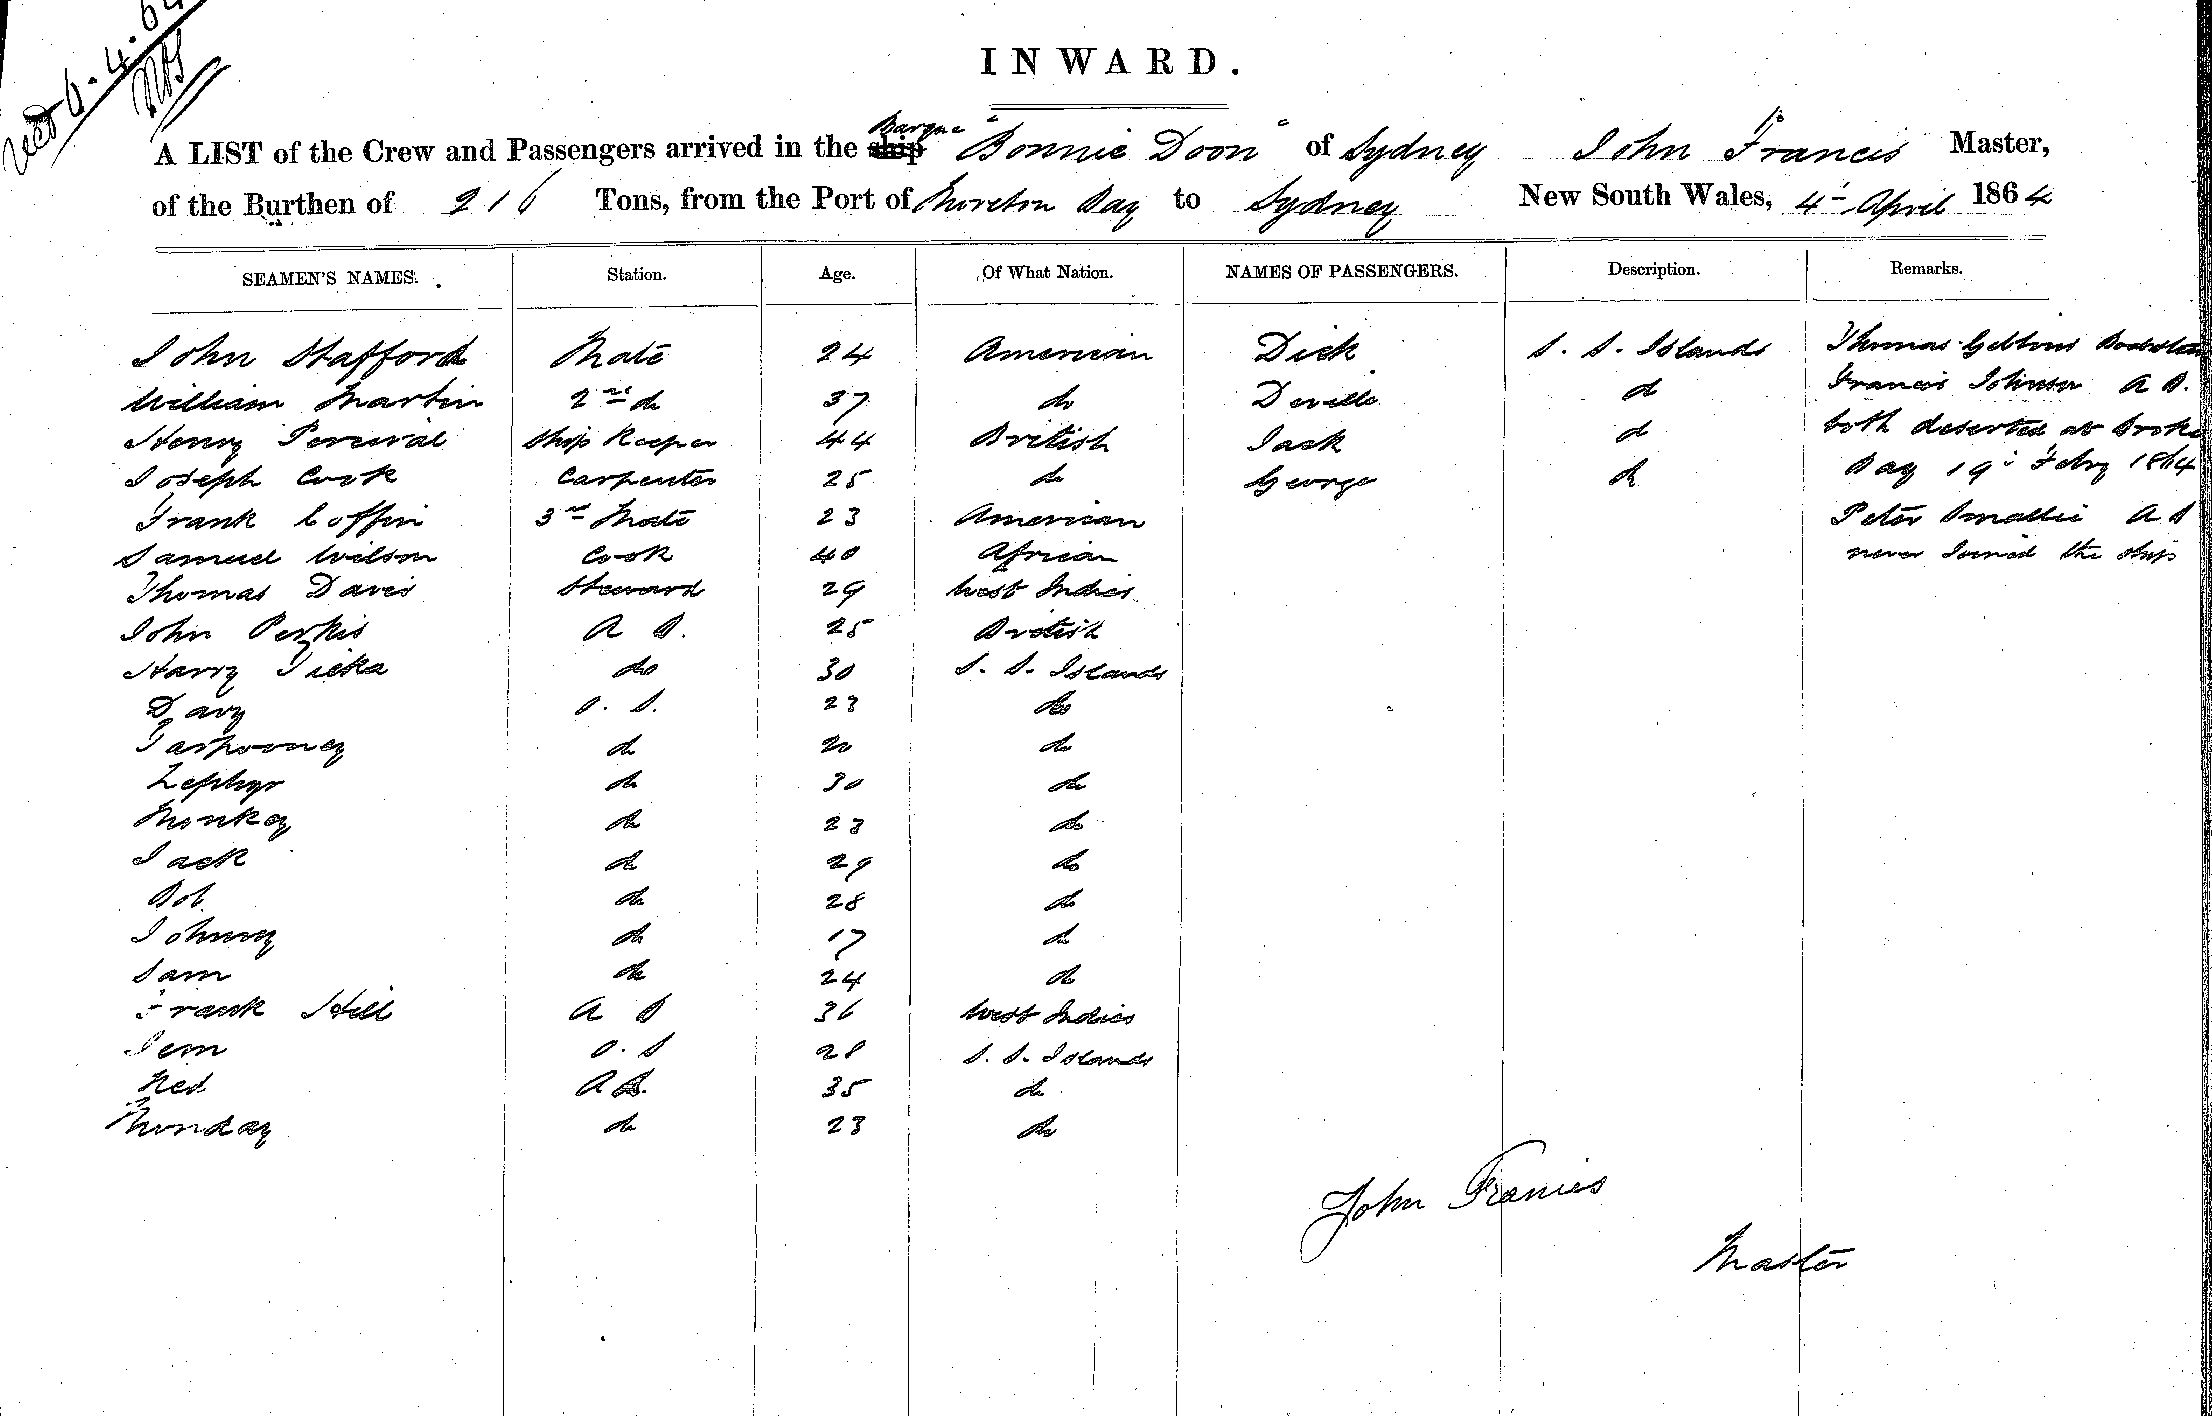 Recd 6.4.64
INWARD.
A LIST of the Crew and Passengers arrived in the ship Barque "Bonnie Doon" of Sydney John Francis Master,
of the Burthen of 216 Tons, from the Port of Moreton Bay to Sydney New South Wales, 4th April 1864
SEAMEN'S NAMES. Station. Age. Of What Nation. NAMES OF PASSENGERS. Description. Remarks.
John Stafford Mate 24 American Dick S. S. Islands Thomas Gibbons
William Martin 2nd do 37 do Deville do Francis Johnson A B.
Henry Percival Ship Keeper 44 British Jack do both deserted at Broken
Joseph Cook Carpenter 25 do George do Bay 19th Feby 1864
Frank Coffin 3rd Mate 23 American Peter Smallie A B
Samuel Wilson Cook 40 African never Joined the ship
Thomas Davis Steward 29 West Indies
John Perkis A B. 25 British
Harry Ticka do 30 S. S. Islands
Davy O. S. 23 do
Tarpooney do 20 do
Zephyr do 30 do
Monkey do 23 do
Jack do 29 do
Bob do 28 do
Johnny do 17 do
Sam do 24 do
Frank Hill A B 36 West Indies
Jem O. S 28 S. S. Islands
Ned A B. 35 do
Monday do 23 do
John Francis
Master